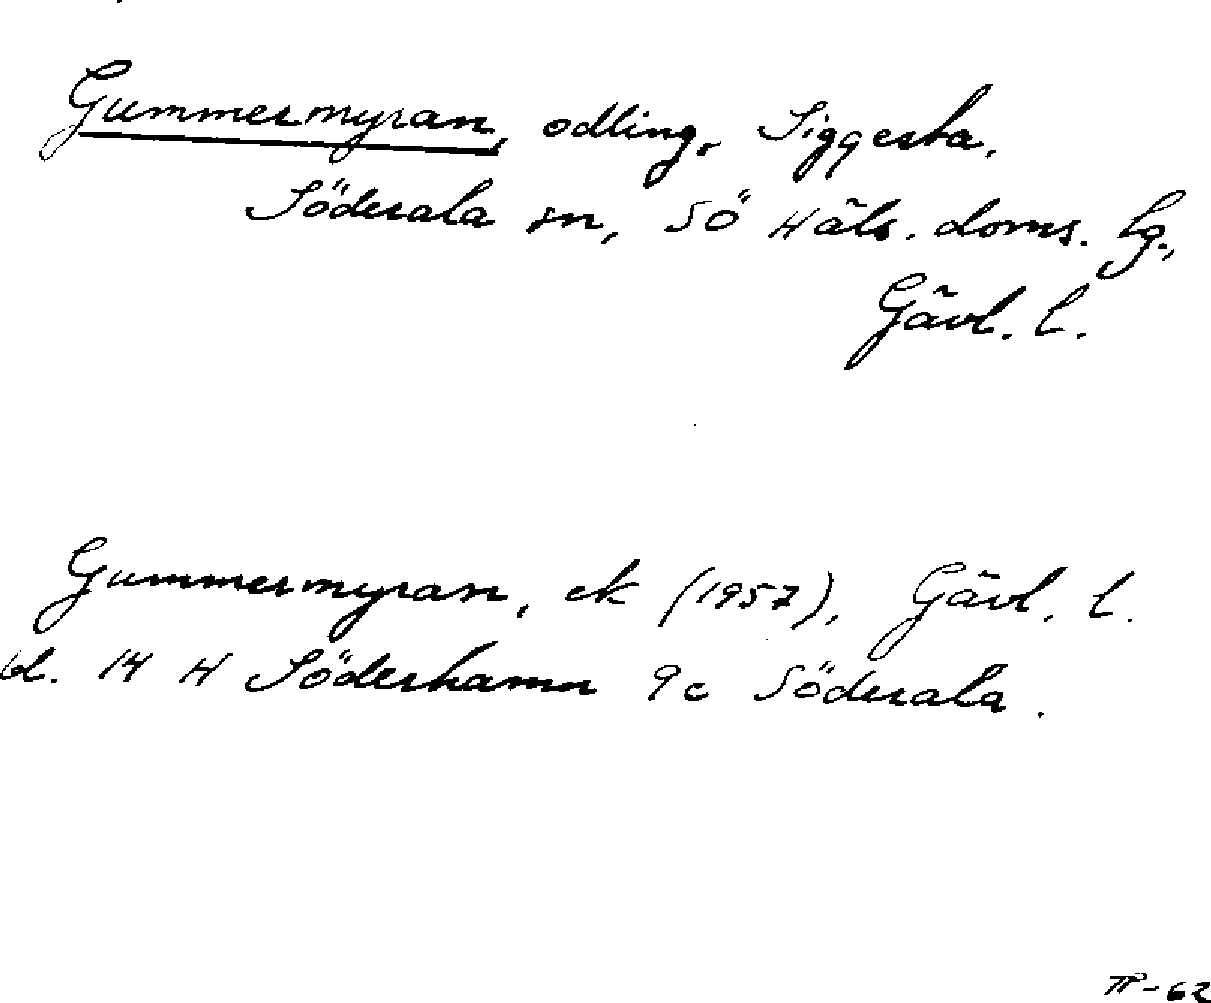 Gummermyran, odling, Siggesta,
Söderala sn, Sö Häls. doms. lg.,
Gävl. l.
Gummermyran, ek (1957), Gävl. l.
bl. 14 H Söderhamn 9c Söderala.
TP-62